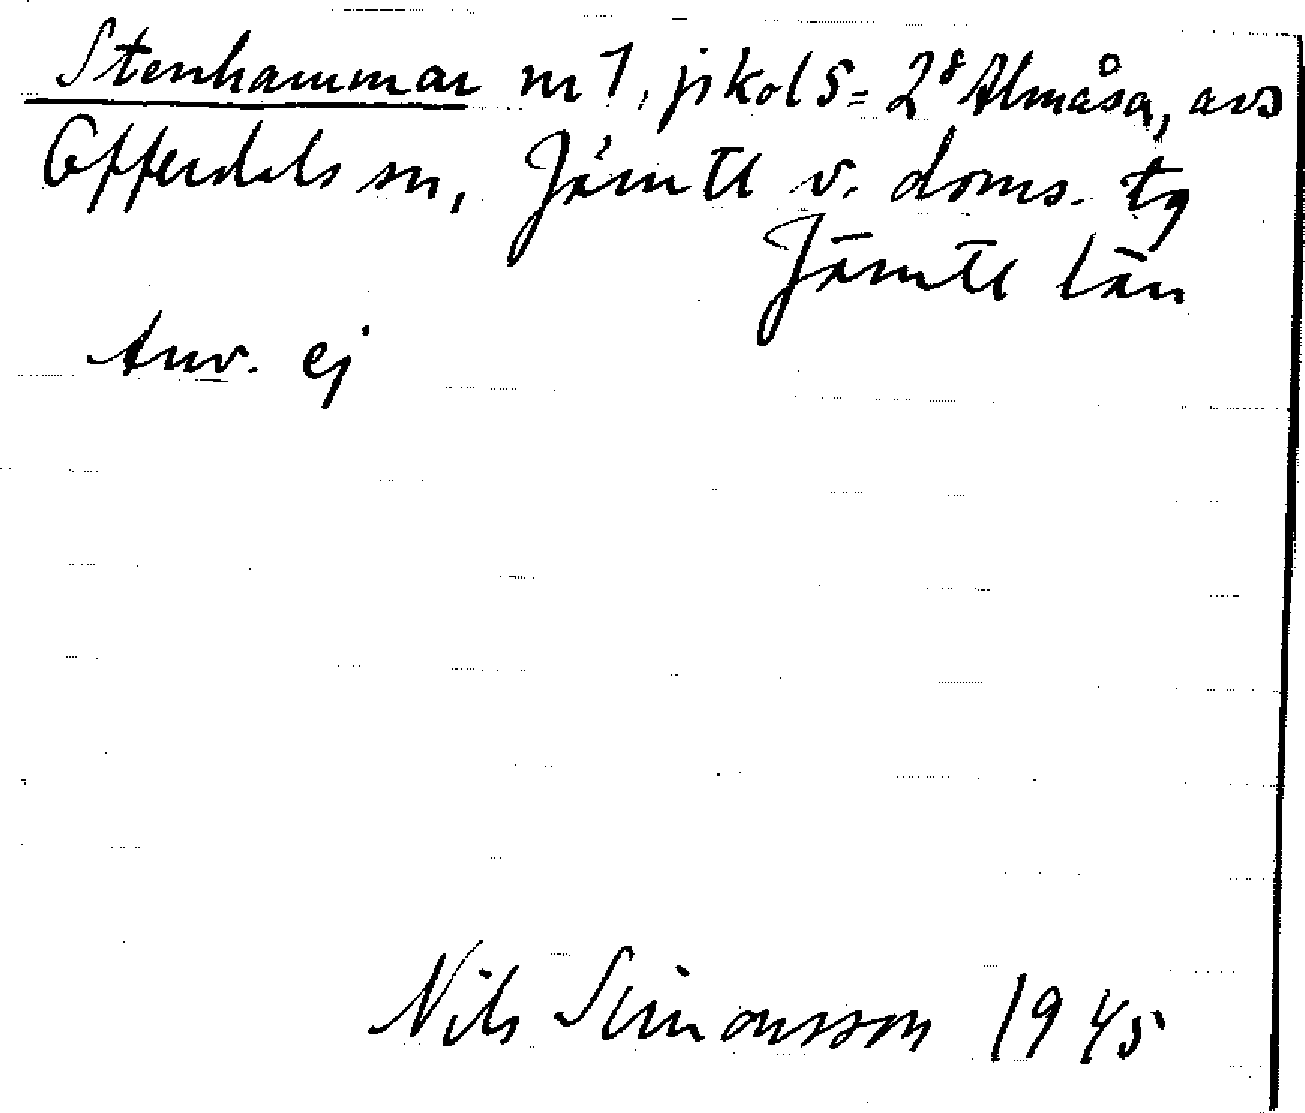 Stenhammar nr 1, jikol S = 2⁸ Almåsa, avs
Offerdals sn, Jämtl v. doms. tg
Jämtl län
Anv. ej
Nils Simonsson 1945